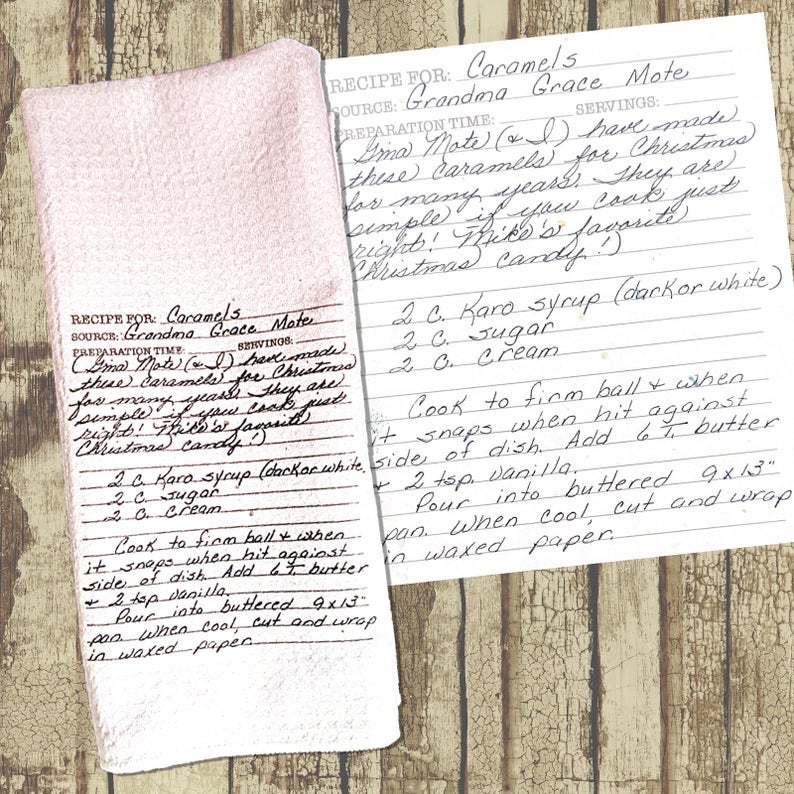 RECIPE FOR: Caramels
SOURCE: Grandma Grace Mote
PREPARATION TIME: SERVINGS:
(Gma Mote (& I) have made
these caramels for Christmas
for many years. They are
simple if you cook just
right! Mike's favorite
Christmas candy!)
2 C. Karo syrup (dark or white
2 C. sugar
2 C. cream
Cook to firm ball & when
it snaps when hit against
side of dish. Add 6 T. butter
& 2 tsp. vanilla.
Pour into buttered 9x13"
pan. When cool, cut and wrap
in waxed paper.
RECIPE FOR: Caramels
SOURCE: Grandma Grace Mote
PREPARATION TIME: SERVINGS:
(Gma Mote (& I) have made
these caramels for Christmas
for many years. They are
simple if you cook just
right! Mike's favorite
Christmas candy!)
2 C. Karo syrup (dark or white)
2 C. sugar
2 C. cream
Cook to firm ball & when
it snaps when hit against
side of dish. Add 6 T. butter
& 2 tsp. vanilla.
Pour into buttered 9x13"
pan. When cool, cut and wrap
in waxed paper.